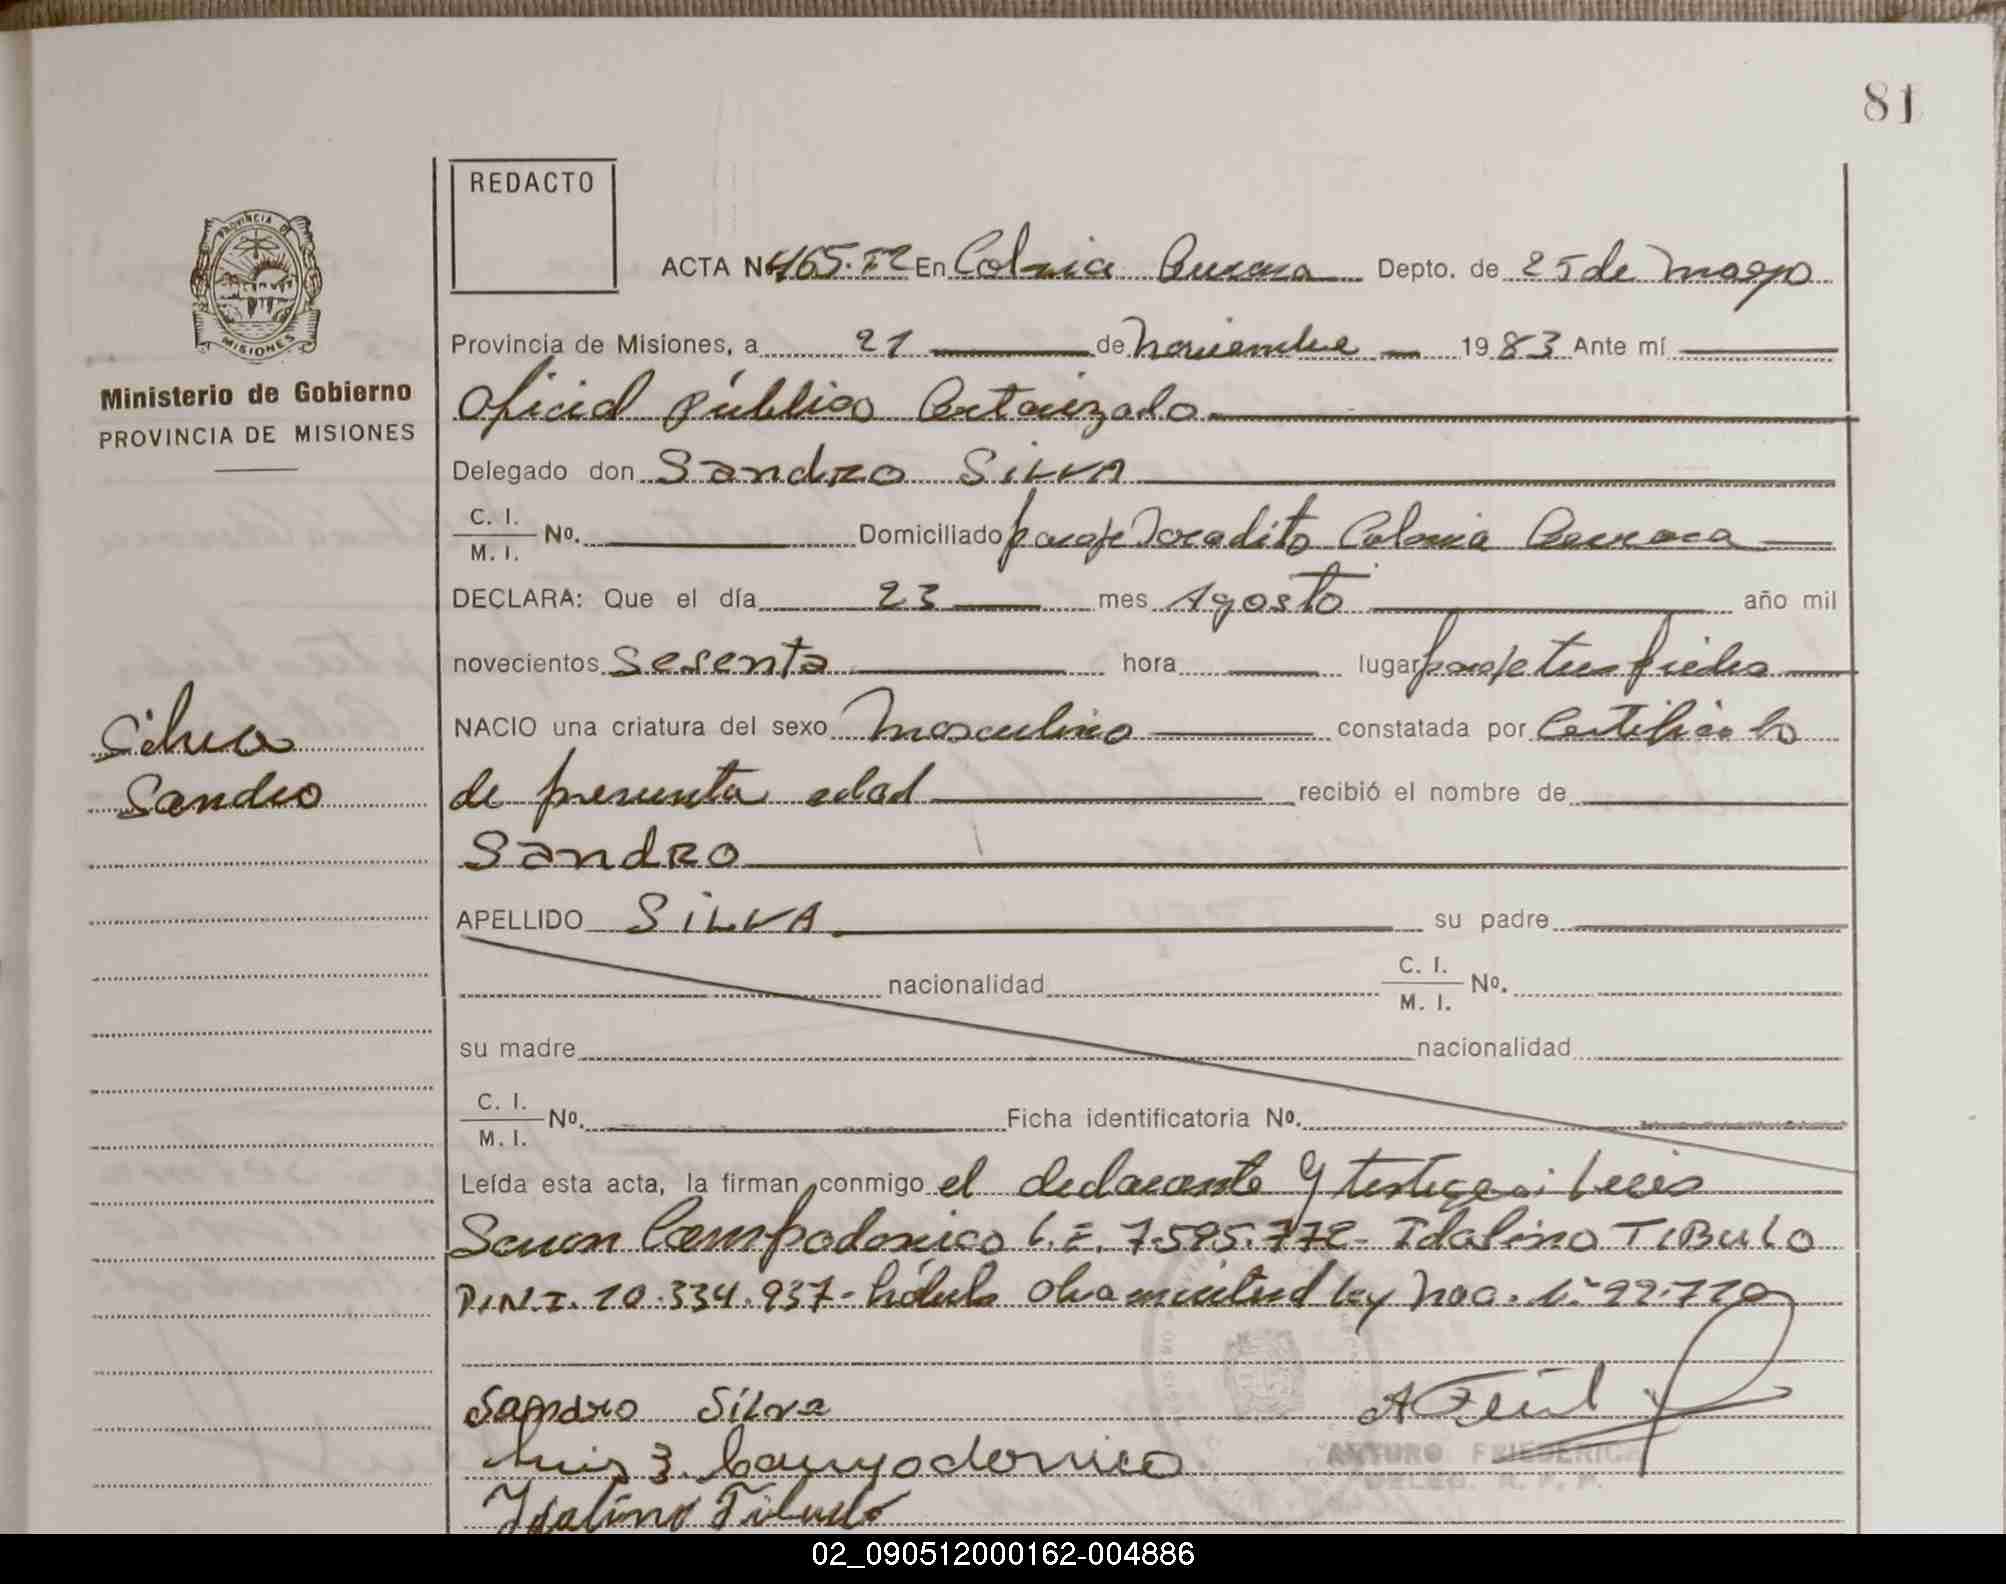 81
REDACTO
ACTA Nº 465. T2 En Colonia Aurora Depto. de 25 de Mayo
PROVINCIA DE
MISIONES
Ministerio de Gobierno
PROVINCIA DE MISIONES
Provincia de Misiones, a 21 de Noviembre 1983 Ante mí
Oficial Público Autorizado
Delegado don Sandro SiLVA
C. I.
M. I. No. Domiciliado paraje Colonia Aurora
DECLARA: Que el día 23 mes Agosto año mil
novecientos Sesenta hora lugar paraje tres piedra
Silva
Sandro
NACIO una criatura del sexo Masculino constatada por Certificado
de presunta edad recibió el nombre de
SandRO
APELLIDO SiLVA su padre
nacionalidad C. I.
M. I. No.
su madre nacionalidad
C. I.
M. I. No. Ficha identificatoria No.
Leída esta acta, la firman conmigo el declarante y testigos: Luis
Campodonico L.E. 7.595.772- Idalino TIBULO
D.N.I. 10.334.937- ley Nac.
Sandro Silva
Luis Campodonico
Idalino Tibulo
ARTURO FRIEDERICH
DELEG. R. P. P.
02_090512000162-004886